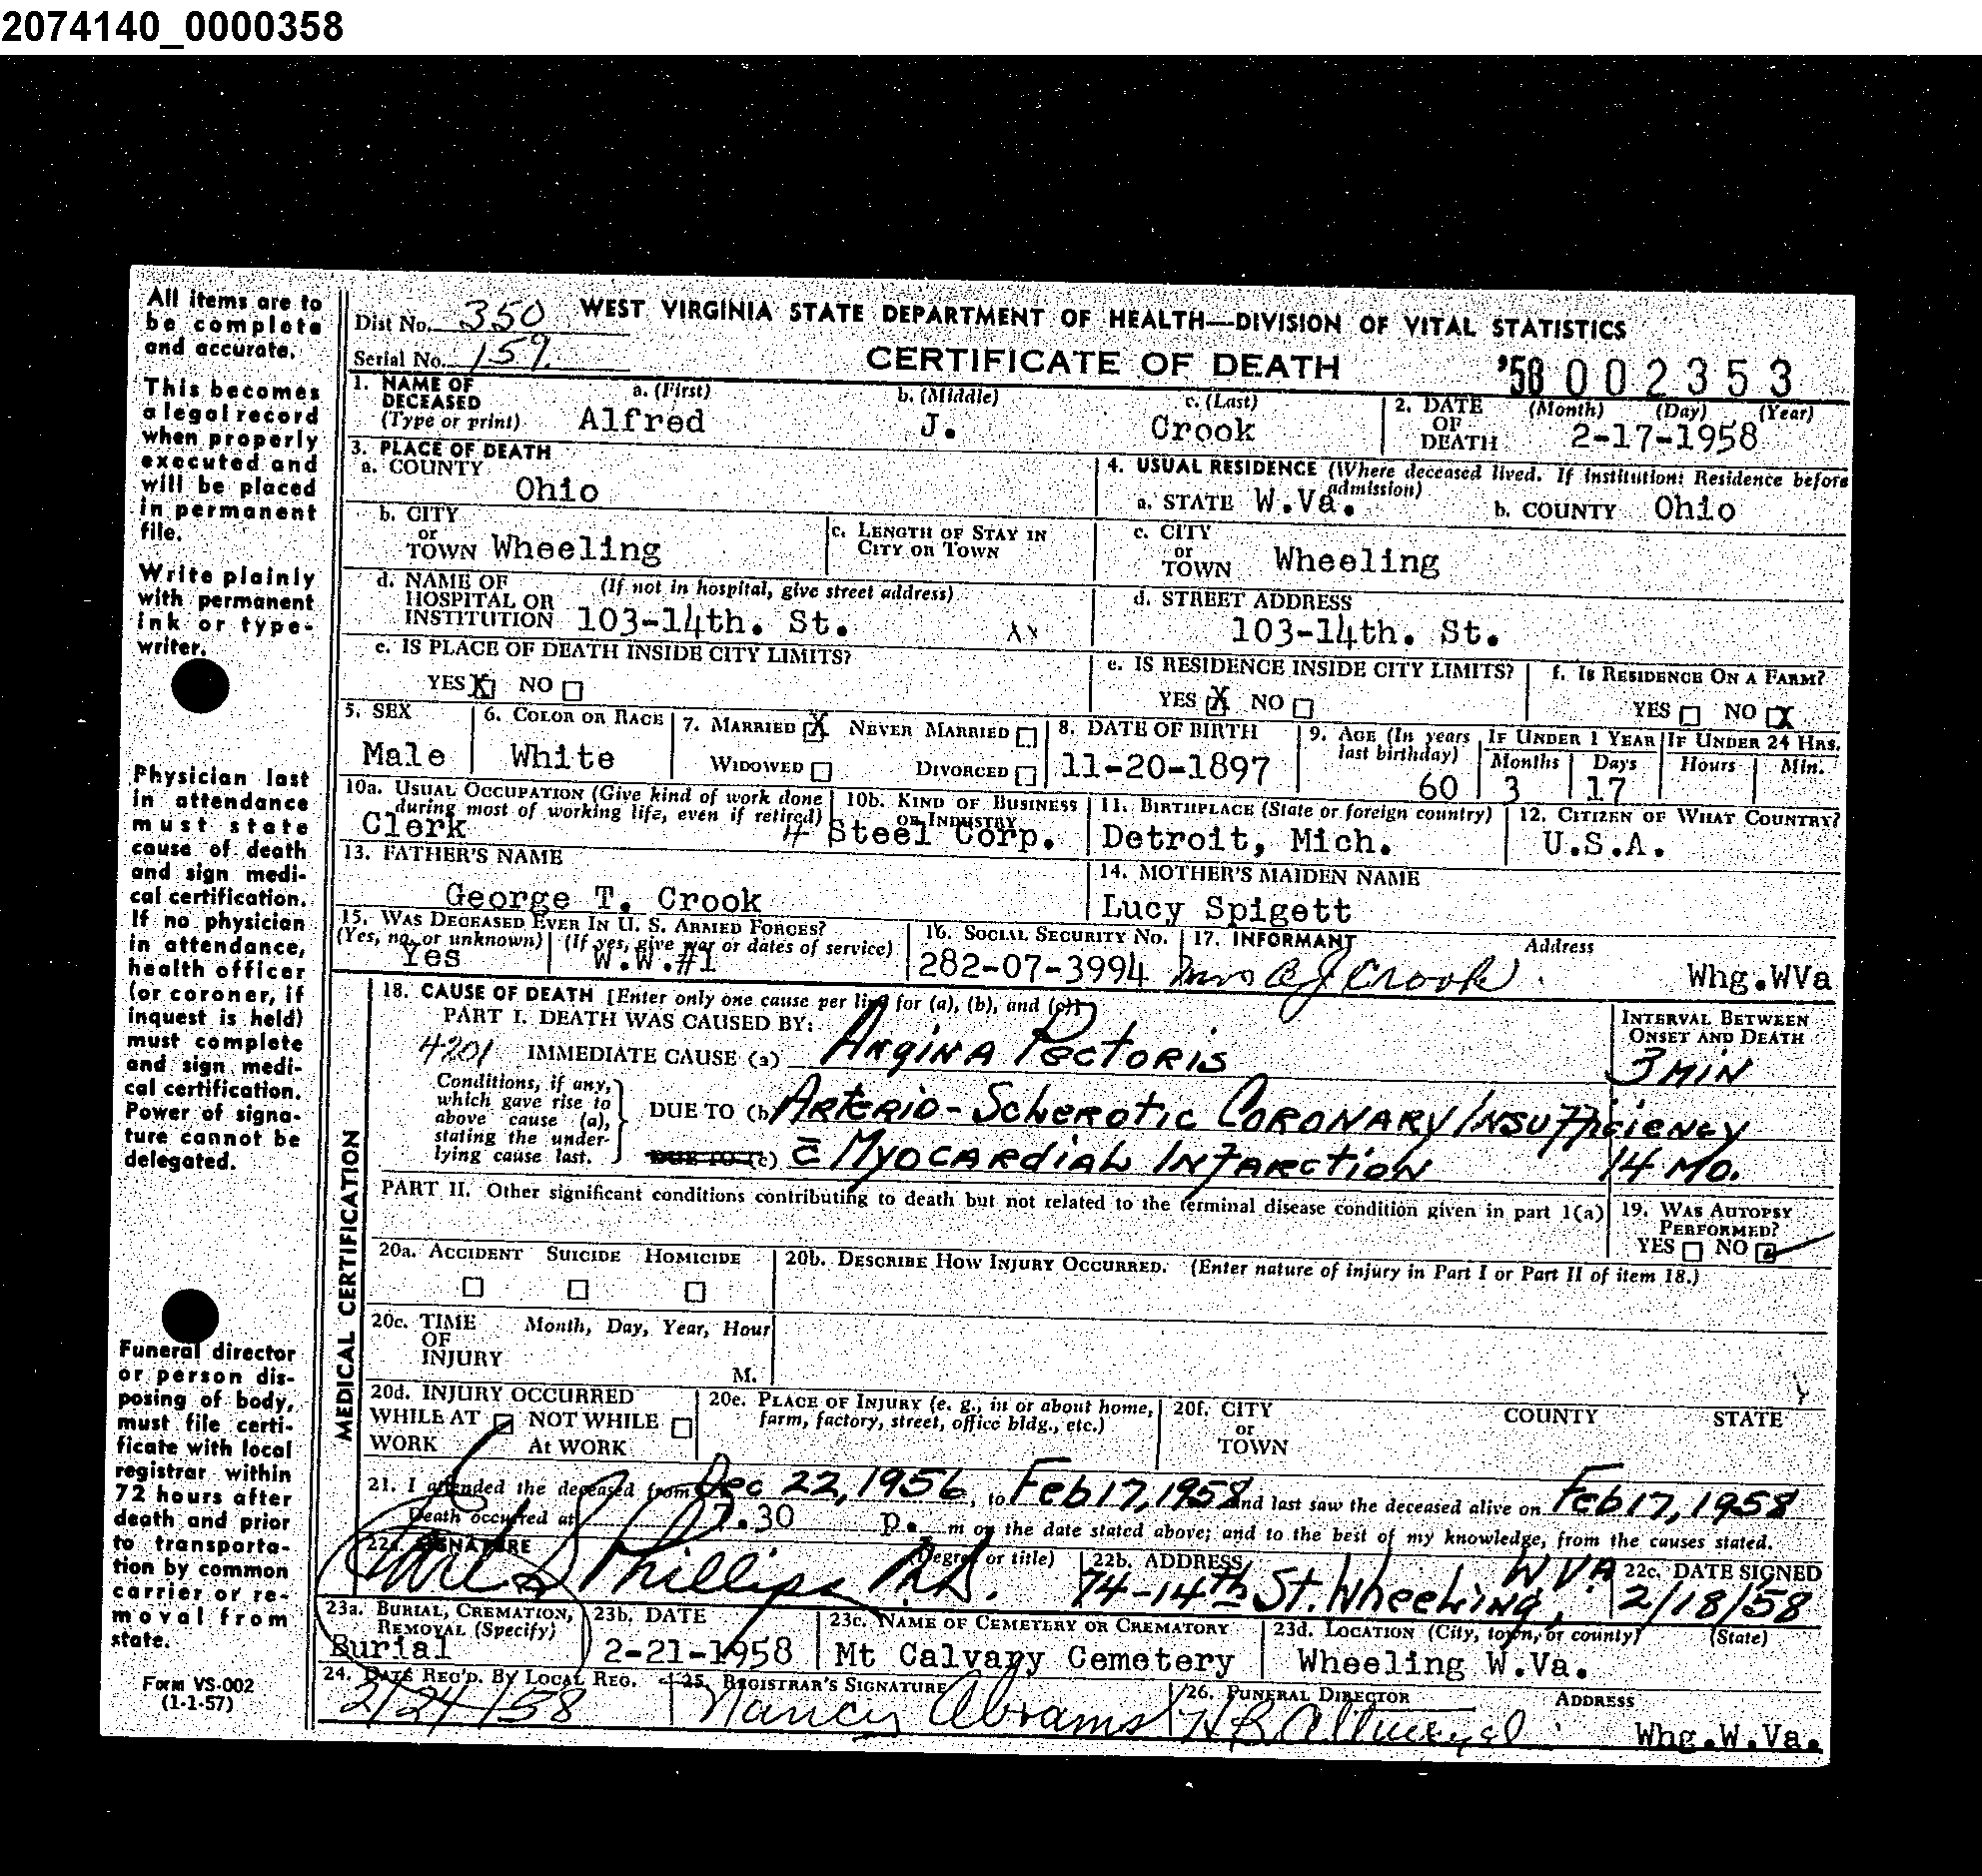 2074140_0000358
All items are to
be complete
and accurate.
This becomes
a legal record
when properly
executed and
will be placed
in permanent
file.
Write plainly
with permanent
ink or type-
writer.
Physician last
in attendance
must state
cause of death
and sign medi-
cal certification.
If no physician
in attendance,
health officer
(or coroner, if
inquest is held)
must complete
and sign medi-
cal certification.
Power of signa-
ture cannot be
delegated.
Funeral director
or person dis-
posing of body,
must file certi-
ficate with local
registrar within
72 hours after
death and prior
to transporta-
tion by common
carrier or re-
moval from
state.
Form VS-002
(1-1-57)
Dist No. 350 WEST VIRGINIA STATE DEPARTMENT OF HEALTH—DIVISION OF VITAL STATISTICS
Serial No. 159. CERTIFICATE OF DEATH '58 002353
1. NAME OF DECEASED (Type or print) a. (First) b. (Middle) c. (Last) 2. DATE OF DEATH (Month) (Day) (Year)
Alfred J. Crook 2-17-1958
3. PLACE OF DEATH
a. COUNTY Ohio
4. USUAL RESIDENCE (Where deceased lived. If institution: Residence before admission)
a. STATE W.Va. b. COUNTY Ohio
b. CITY or TOWN Wheeling c. LENGTH OF STAY IN CITY OR TOWN
c. CITY or TOWN Wheeling
d. NAME OF HOSPITAL OR INSTITUTION (If not in hospital, give street address) 103-14th. St.
d. STREET ADDRESS 103-14th. St.
e. IS PLACE OF DEATH INSIDE CITY LIMITS?
YES X NO
e. IS RESIDENCE INSIDE CITY LIMITS? f. IS RESIDENCE ON A FARM?
YES X NO YES NO X
5. SEX Male 6. COLOR OR RACE White 7. MARRIED X NEVER MARRIED WIDOWED DIVORCED
8. DATE OF BIRTH 11-20-1897 9. AGE (In years last birthday) 60 IF UNDER 1 YEAR Months 3 Days 17 IF UNDER 24 HRS. Hours Min.
10a. USUAL OCCUPATION (Give kind of work done during most of working life, even if retired) Clerk 4
10b. KIND OF BUSINESS OR INDUSTRY Steel Corp.
11. BIRTHPLACE (State or foreign country) Detroit, Mich.
12. CITIZEN OF WHAT COUNTRY? U.S.A.
13. FATHER'S NAME George T. Crook
14. MOTHER'S MAIDEN NAME Lucy Spigett
15. WAS DECEASED EVER IN U. S. ARMED FORCES?
(Yes, no, or unknown) Yes (If yes, give war or dates of service) W.W.#1
16. SOCIAL SECURITY NO. 282-07-3994
17. INFORMANT Mrs A J Crook Address Whg.WVa
MEDICAL CERTIFICATION
18. CAUSE OF DEATH [Enter only one cause per line for (a), (b), and (c)]
PART I. DEATH WAS CAUSED BY: INTERVAL BETWEEN ONSET AND DEATH
4201 IMMEDIATE CAUSE (a) Angina Pectoris 3 MIN
Conditions, if any, which gave rise to above cause (a), stating the under-lying cause last.
DUE TO (b) Arterio-Scherotic Coronary Insufficiency
DUE TO (c) c̄ Myocardiah Infarction 14 MO.
PART II. Other significant conditions contributing to death but not related to the terminal disease condition given in part 1(a)
19. WAS AUTOPSY PERFORMED?
YES NO
20a. ACCIDENT SUICIDE HOMICIDE
20b. DESCRIBE HOW INJURY OCCURRED. (Enter nature of injury in Part I or Part II of item 18.)
20c. TIME OF INJURY Month, Day, Year, Hour M.
20d. INJURY OCCURRED WHILE AT WORK NOT WHILE AT WORK
20e. PLACE OF INJURY (e. g., in or about home, farm, factory, street, office bldg., etc.)
20f. CITY or TOWN COUNTY STATE
21. I attended the deceased from Dec 22, 1956, to Feb 17, 1958 and last saw the deceased alive on Feb 17, 1958
Death occurred at 7.30 p. m on the date stated above; and to the best of my knowledge, from the causes stated.
22a. SIGNATURE Phillips M.D. (Degree or title)
22b. ADDRESS 74-14th St. Wheeling, W VA
22c. DATE SIGNED 2/18/58
23a. BURIAL, CREMATION, REMOVAL (Specify) Burial
23b. DATE 2-21-1958
23c. NAME OF CEMETERY OR CREMATORY Mt Calvary Cemetery
23d. LOCATION (City, town, or county) (State) Wheeling W.Va.
24. DATE REC'D. BY LOCAL REG. 2/21/58
25. REGISTRAR'S SIGNATURE Nancy Abrams
26. FUNERAL DIRECTOR ADDRESS Whg.W.Va.